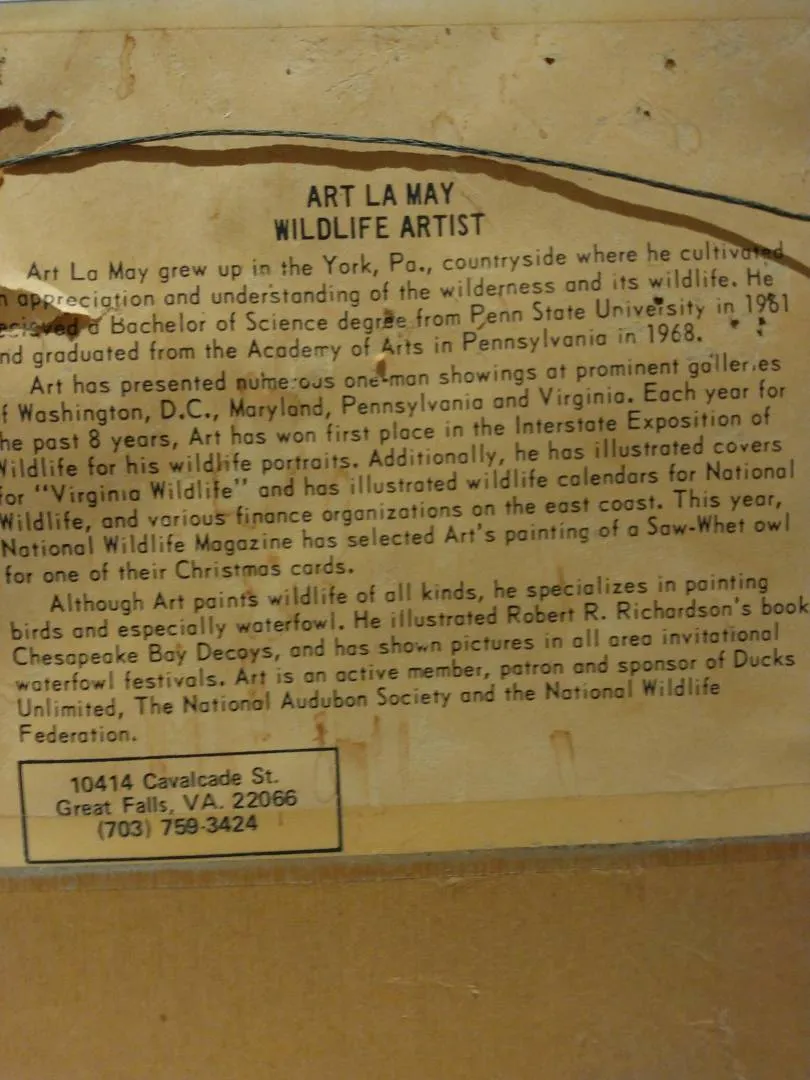 ART LA MAY
WILDLIFE ARTIST
Art La May grew up in the York, Pa., countryside where he cultivated
n appreciation and understanding of the wilderness and its wildlife. He
ecieved a Bachelor of Science degree from Penn State University in 1961
nd graduated from the Academy of Arts in Pennsylvania in 1968.
Art has presented numerous one-man showings at prominent galleries
f Washington, D.C., Maryland, Pennsylvania and Virginia. Each year for
he past 8 years, Art has won first place in the Interstate Exposition of
Wildlife for his wildlife portraits. Additionally, he has illustrated covers
for "Virginia Wildlife" and has illustrated wildlife calendars for National
Wildlife, and various finance organizations on the east coast. This year,
National Wildlife Magazine has selected Art's painting of a Saw-Whet owl
for one of their Christmas cards.
Although Art paints wildlife of all kinds, he specializes in painting
birds and especially waterfowl. He illustrated Robert R. Richardson's book
Chesapeake Bay Decoys, and has shown pictures in all area invitational
waterfowl festivals. Art is an active member, patron and sponsor of Ducks
Unlimited, The National Audubon Society and the National Wildlife
Federation.
10414 Cavalcade St.
Great Falls, VA. 22066
(703) 759-3424